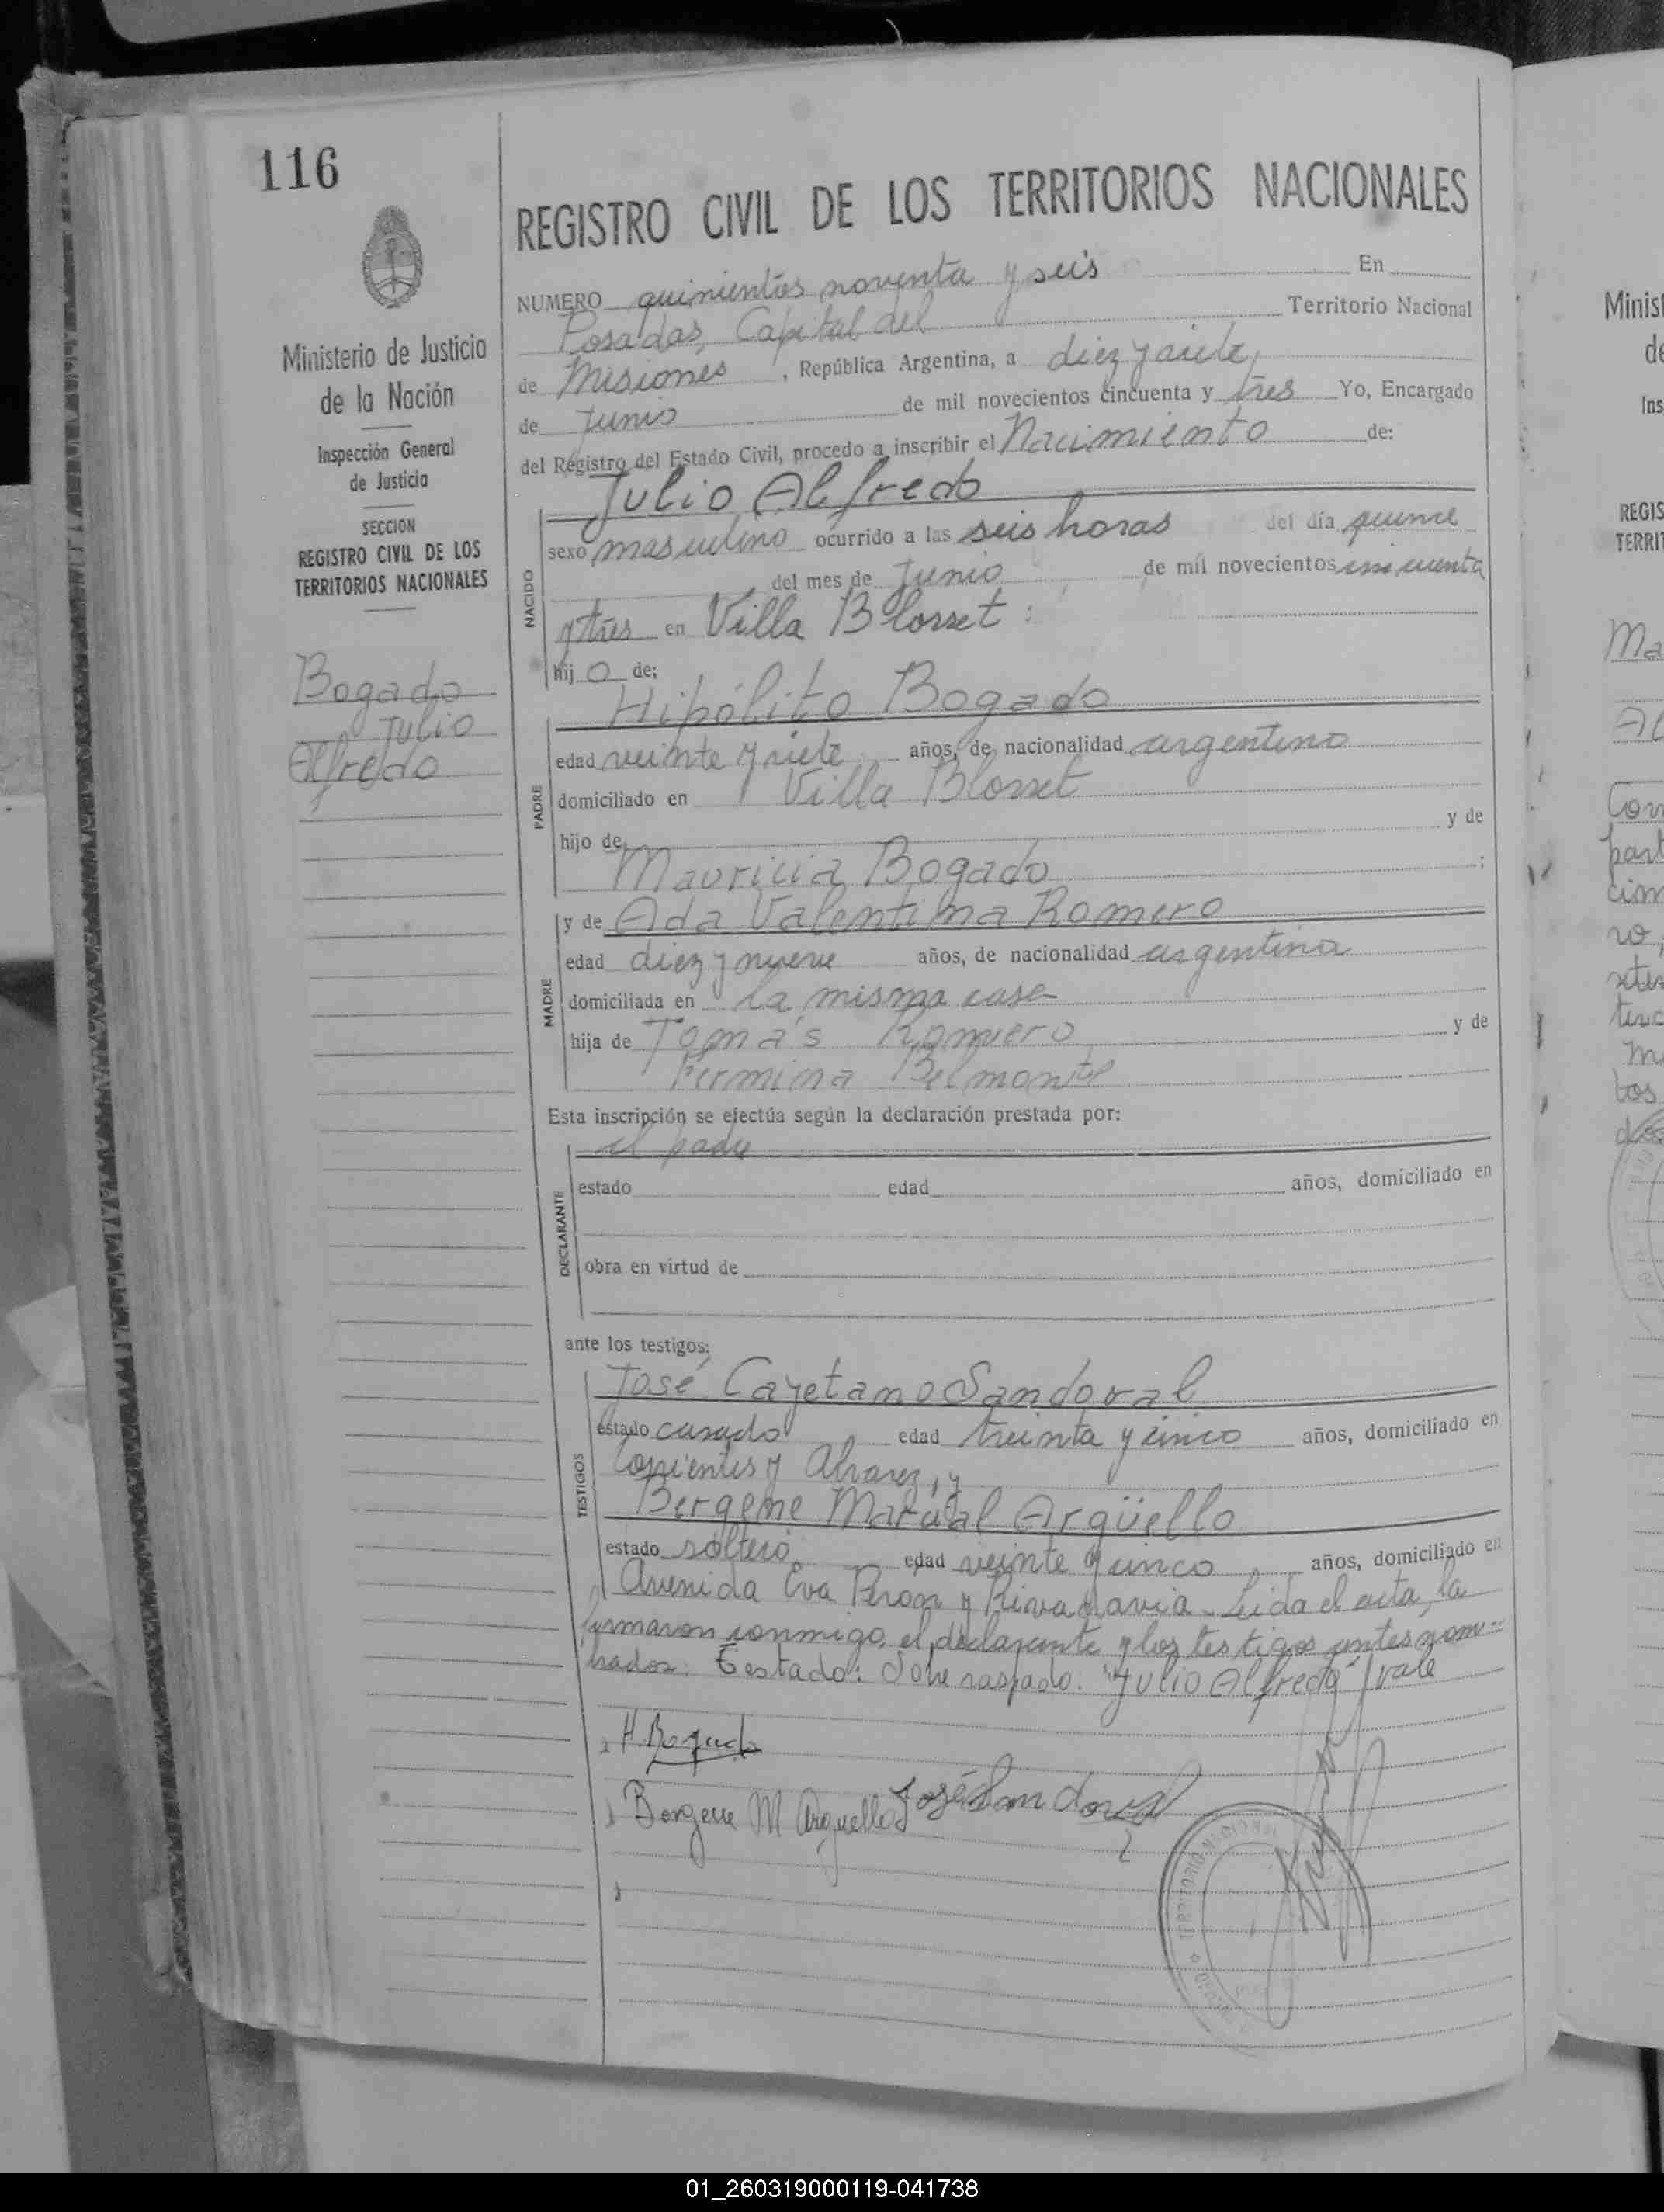 116
Ministerio de Justicia
de la Nación
Inspección General
de Justicia
SECCION
REGISTRO CIVIL DE LOS
TERRITORIOS NACIONALES
Bogado
Julio
Alfredo
REGISTRO CIVIL DE LOS TERRITORIOS NACIONALES
NUMERO quinientos noventa y seis En
Posadas, Capital del Territorio Nacional
de Misiones, República Argentina, a diez y siete,
de Junio de mil novecientos cincuenta y tres Yo, Encargado
del Registro del Estado Civil, procedo a inscribir el Nacimiento de:
Julio Alfredo
NACIDO
sexo masculino ocurrido a las seis horas del día quince
del mes de Junio de mil novecientos cincuenta
y tres en Villa Blosset:
hijo de;
Hipólito Bogado
PADRE
edad veinte y siete años, de nacionalidad argentino
domiciliado en Villa Blosset
hijo de y de
Mauricia Bogado :
MADRE
y de Ada Valentina Romero
edad diez y nueve años, de nacionalidad argentina
domiciliada en la misma casa
hija de Tomás Romero y de
Fermina Belmonte
Esta inscripción se efectúa según la declaración prestada por:
el padre
DECLARANTE
estado edad años, domiciliado en
obra en virtud de
ante los testigos:
José Cayetano Sandoval
TESTIGOS
estado casado edad treinta y cinco años, domiciliado en
Corrientes y Alvarez, y
Bergene Marcial Argüello
estado soltero edad veinte y cinco años, domiciliado en
Avenida Eva Peron y Rivadavia - Leida el acta, la
firmaron conmigo, el declarante y los testigos antes nom-
brados: Sobre raspado: "Julio Alfredo" vale
H. Bogado
Bergene M Arguello José Sandoval
TERRITORIO NACIONAL
Minist
de
Ins
REGIS
TERRIT
Ma
Al
01_260319000119-041738